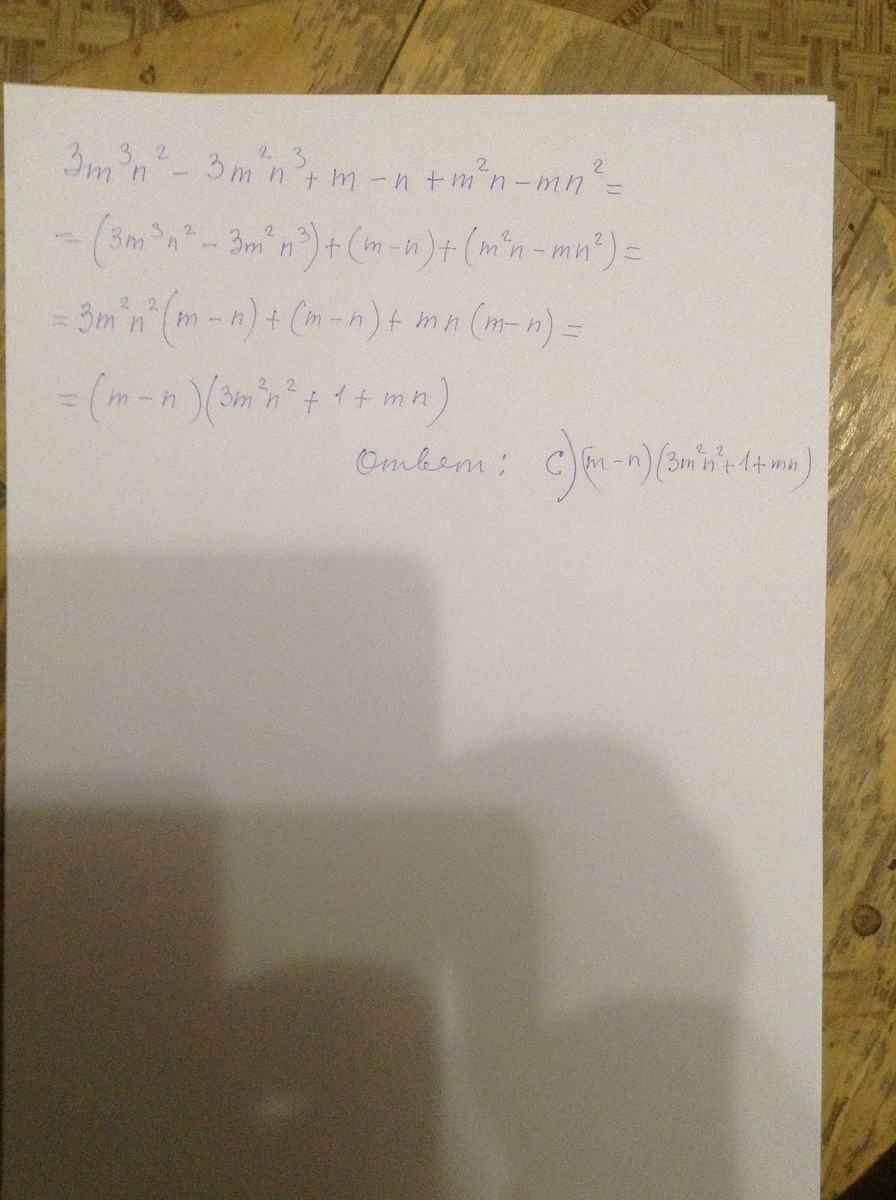 3m³n² - 3m²n³ + m - n + m²n - mn² =
= (3m³n² - 3m²n³) + (m - n) + (m²n - mn²) =
= 3m²n²(m - n) + (m - n) + mn(m - n) =
= (m - n)(3m²n² + 1 + mn)
Ответ: C) (m - n)(3m²n² + 1 + mn)